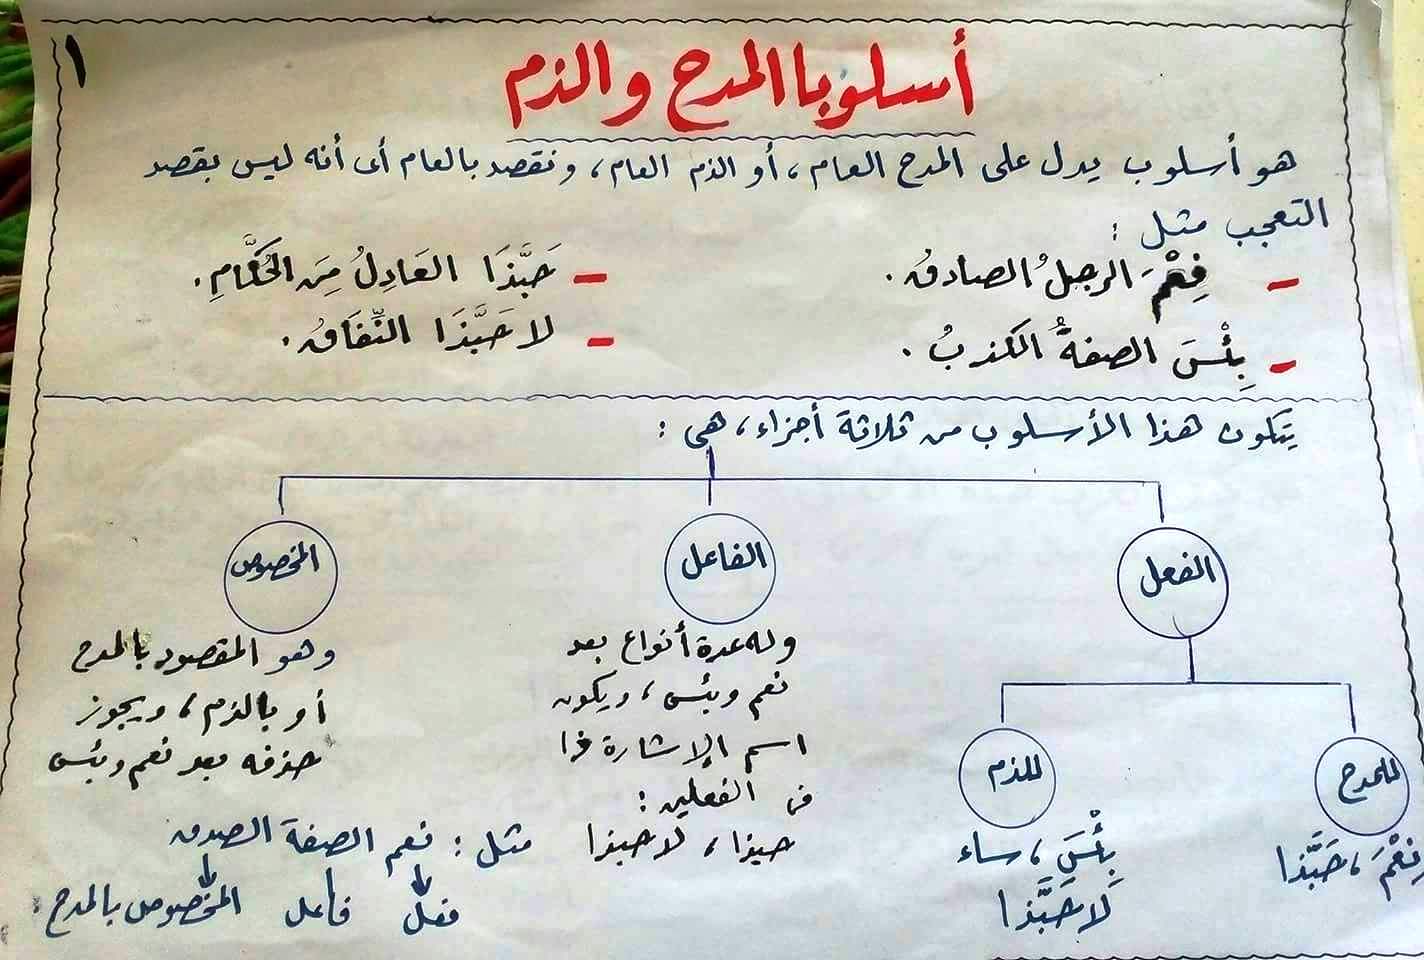 ١
أسلوبا المدح والذم
هو أسلوب يدل على المدح العام، أو الذم العام، ونقصد بالعام أى أنه ليس بقصد
التعجب مثل :
- نِعْمَ الرجلُ الصادقُ.
- حَبَّذَا العَادِلُ مِنَ الحُكَّامِ.
- بِئْسَ الصفةُ الكذبُ.
- لا حَبَّذَا النِّفَاقُ.
يتكون هذا الأسلوب من ثلاثة أجزاء، هى :
الفعل
الفاعل
المخصوص
للمدح
نِعْمَ، حَبَّذا
للذم
بِئْسَ، ساء
لَا حَبَّذا
وله عدة أنواع بعد
نعم وبئس، ويكون
اسم الإشارة ذا
فى الفعلين :
حبذا، لا حبذا
وهو المقصود بالمدح
أو بالذم، ويجوز
حذفه بعد نعم وبئس
مثل : نعم الصفة الصدق
فعل فاعل المخصوص بالمدح.